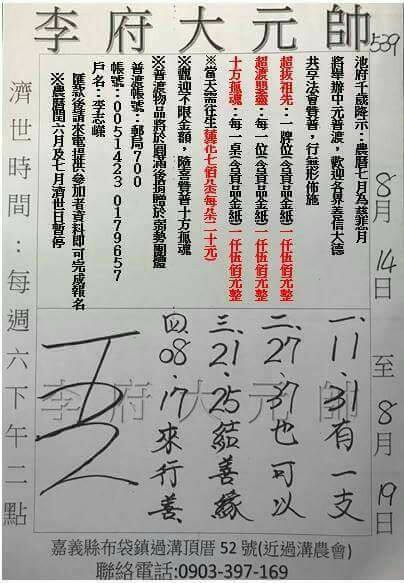 李府大元帥
539
8月14日至8月19日
池府千歲降示:農曆七月為慈悲月
將舉辦中元普渡,歡迎各界善信大德
共享法會贊普,行無形佈施
超拔祖先:每一牌位(含貢品金紙)一仟伍佰元整
超渡嬰靈:每一位(含貢品金紙)一仟伍佰元整
十方孤魂:每一桌(含貢品金紙)一仟伍佰元整
※當天需往生蓮花七個(每朵二十元)
※歡迎不限金額,隨喜贊普十方孤魂
※普渡物品將於圓滿後捐贈於弱勢團體
普渡帳號:郵局700
帳號:0051423 0179657
戶名:李志嶸
匯款後請來電提供參加者資料即可完成報名
※農曆閏六月及七月濟世日暫停
一、11.31有一支
二、27.37也可以
三、21.25結善緣
四、08.17來行善
李府大元帥
濟世時間:每週六下午二點
嘉義縣布袋鎮過溝頂厝 52 號(近過溝農會)
聯絡電話:0903-397-169